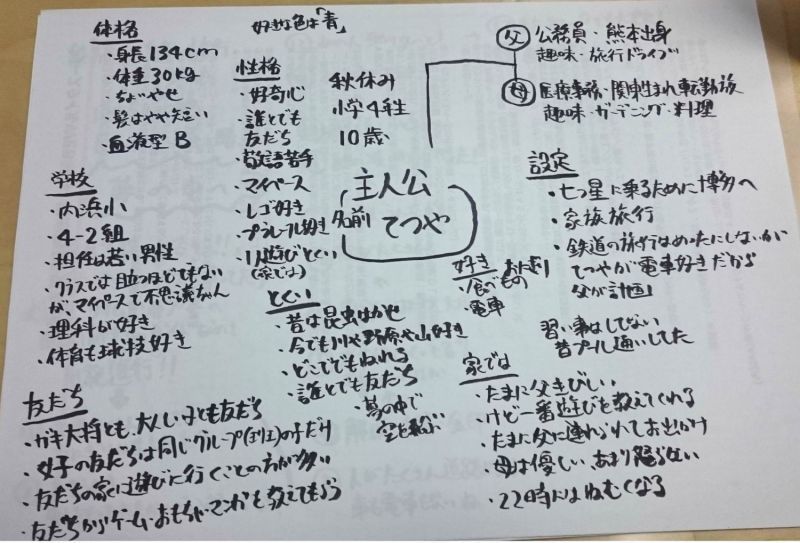 好きな色は「青」
体格
・身長134cm
・体重30kg
・ちょいやせ
・髪はやや短い
・血液型B
性格
・好奇心
・誰とでも
友だち
・敬語苦手
・マイペース
・レゴ好き
・プラレール好き
・1人遊びとくい
(家では)
秋休み
小学4年生
10歳
父 公務員・熊本出身
趣味・旅行ドライブ
母 医療事務・関東生まれ転勤族
趣味・ガーデニング・料理
主人公
名前 てつや
学校
・内浜小
・4-2組
・担任は若い男性
・クラスでは目立つほどでもない
が、マイペースで不思議ちゃん
・理科が好き
・体育も球技好き
設定
・七つ星に乗るために博多へ
・家族旅行
・鉄道の旅行はめったにしないが
てつやが電車好きだから
父が計画
好き
・食べもの おにぎり
・電車
習い事はしてない
昔プール通いしてた
とくい
・昔は昆虫はかせ
・今でも川や野原や山好き
・どこででもねれる
・誰とでも友だち
・夢の中で
空を飛ぶ
友だち
・ガキ大将とも、大人しい子とも友だち
・女子の友だちは同じグループ(班)の子だけ
・友だちの家に遊びに行くことの方が多い
・友だちからゲーム・おもちゃ・マンガを教えてもらう
家では
・たまに父きびしい
・けど一番遊びを教えてくれる
・たまに父に連れられてお出かけ
・母は優しい、あまり怒らない
・22時にはねむくなる